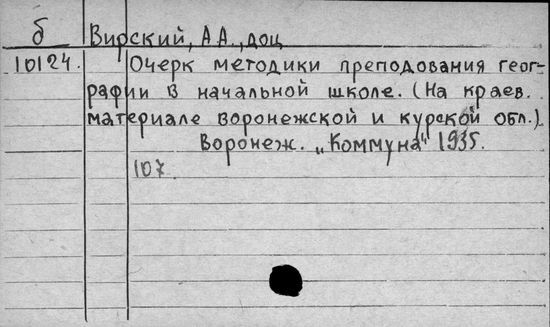 б Вирский, А А., доц
10124. Очерк методики преподования геог-
рафии в начальной школе. (На краев.
материале воронежской и курской обл.)
Воронеж. „Коммуна" 1935.
107.